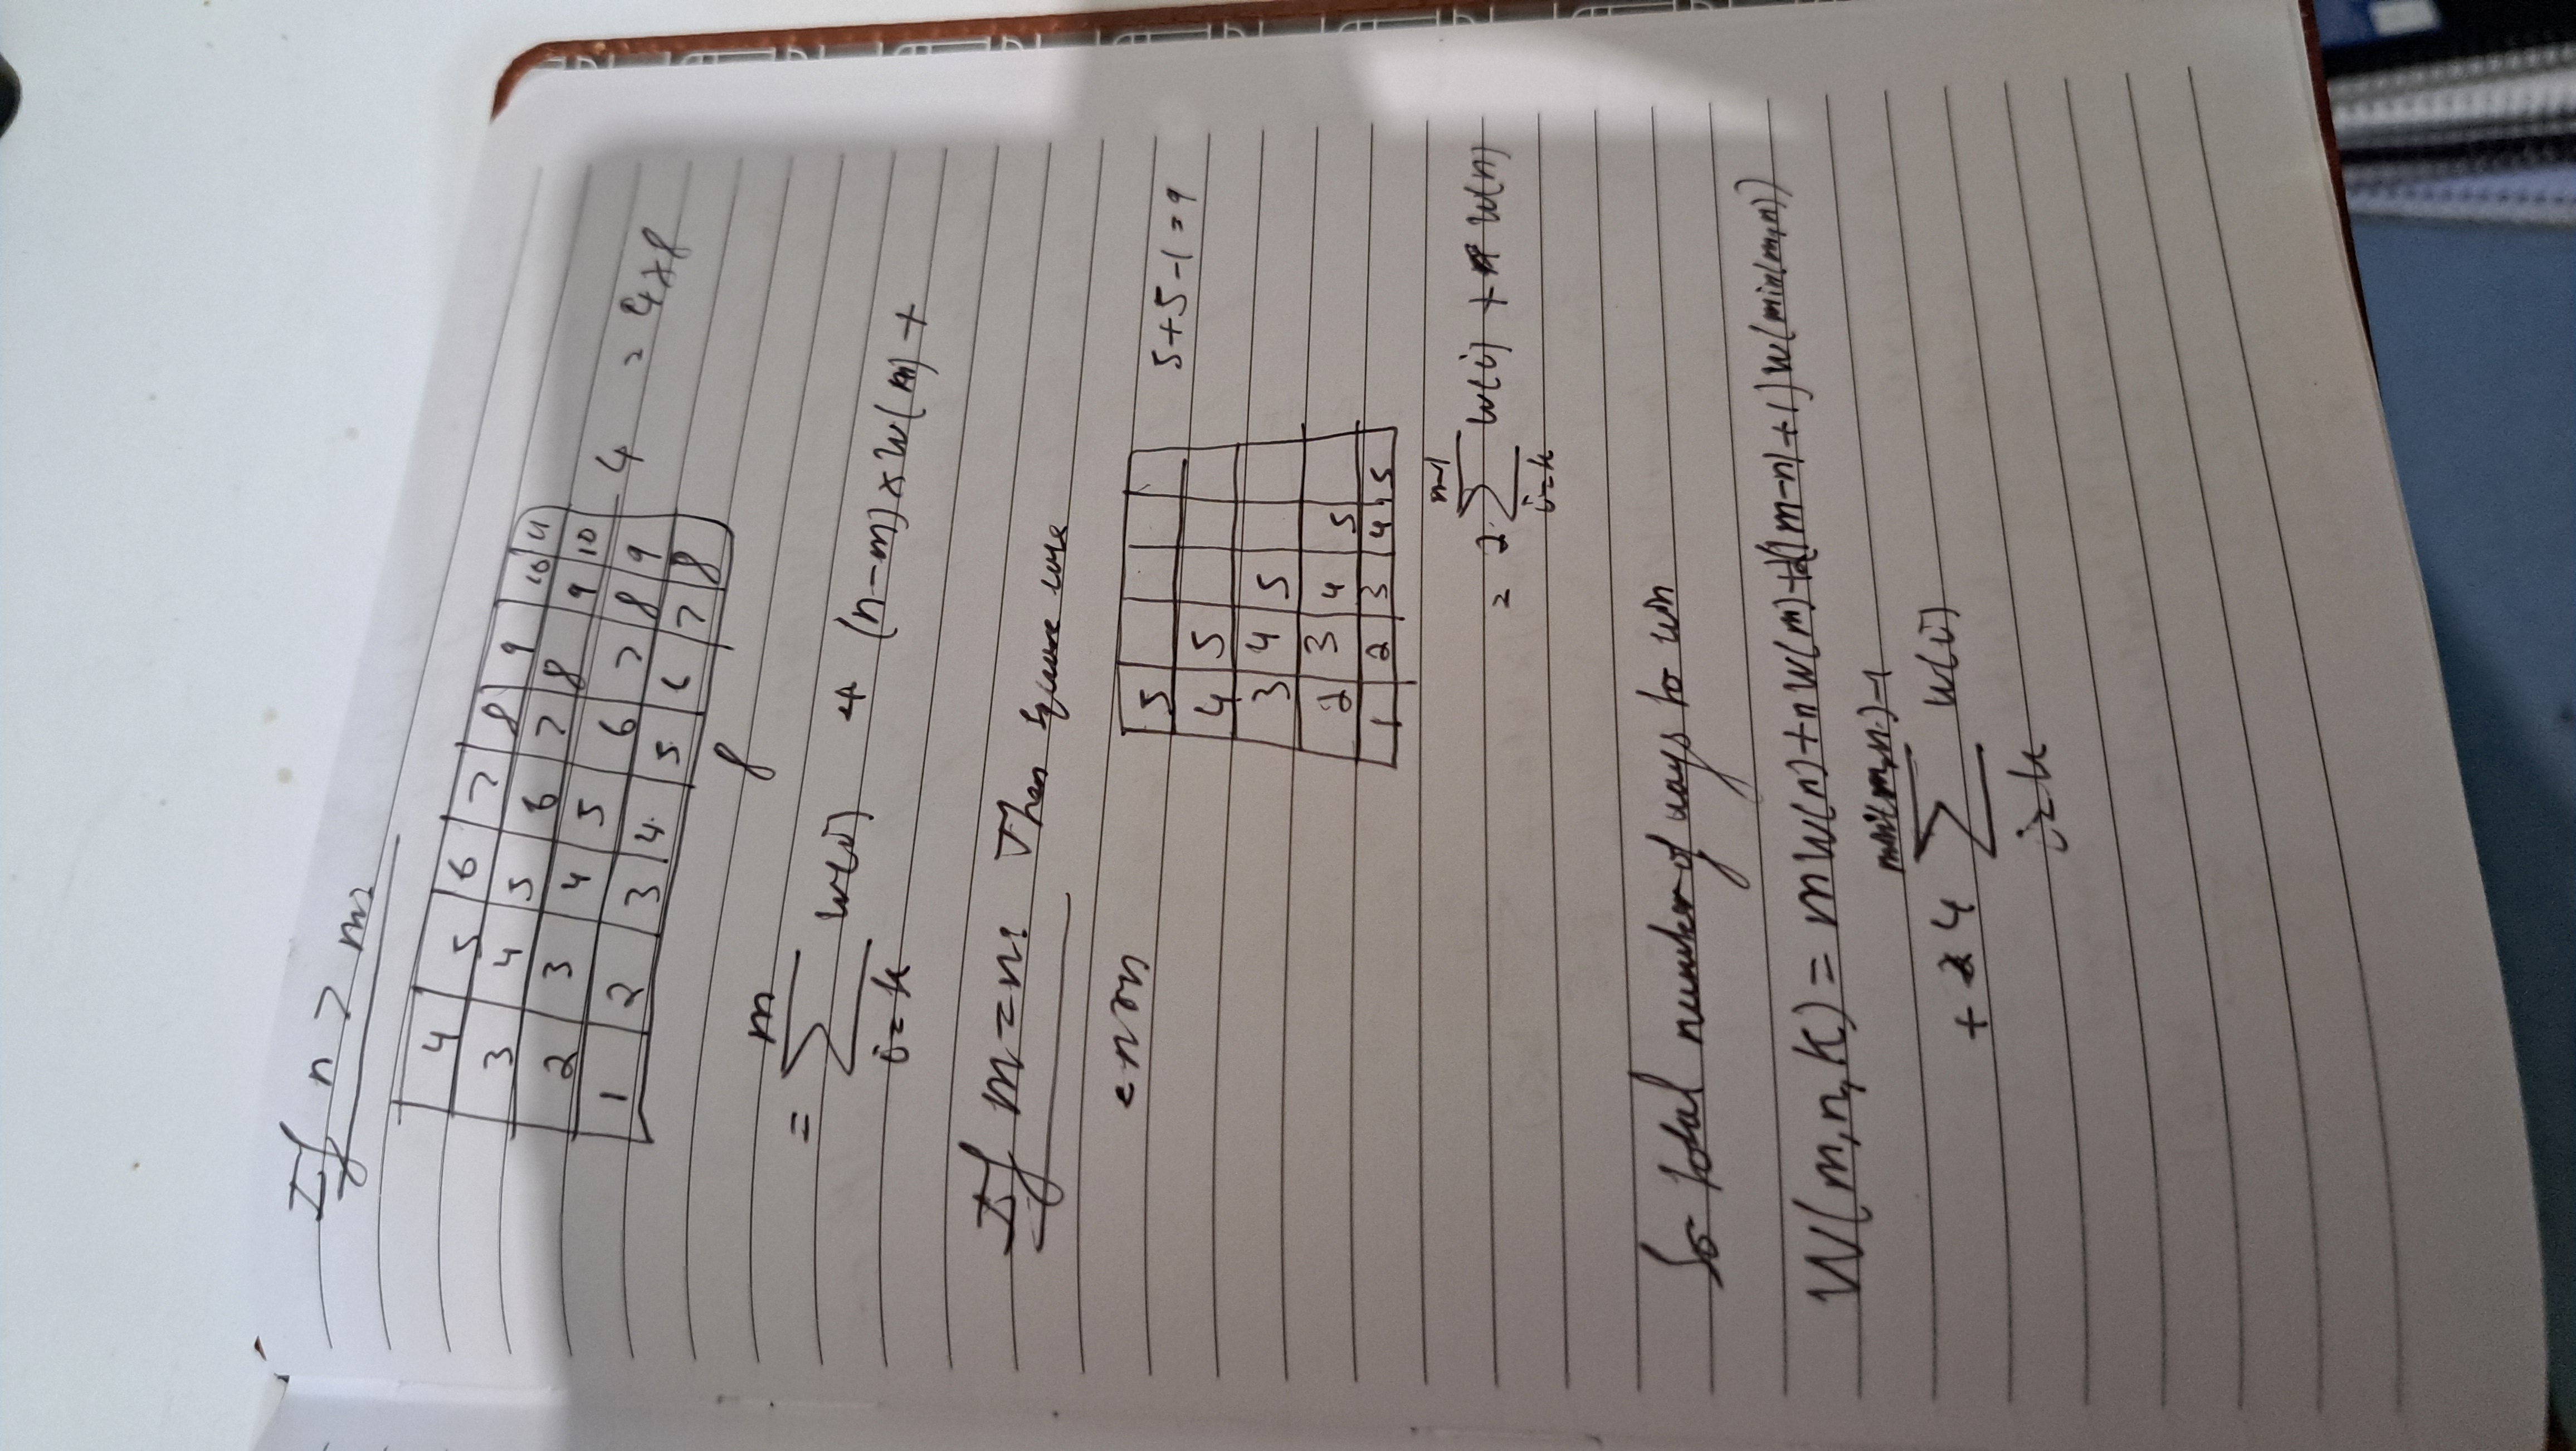 If n > m:
4 5 6 7 8 9 10 11
3 4 5 6 7 8 9 10
2 3 4 5 6 7 8 9
1 2 3 4 5 6 7 8
4 = 4×8
8
= ∑_{i=k}^{m} w(i) + (n-m) × w(m) +
If m = n: Then square case
= n×n
5
4 5
3 4 5
2 3 4 5
1 2 3 4 5
5+5-1=9
= 2 ∑_{i=k}^{n-1} w(i) + w(n)
So total number of ways to win
W(m,n,k) = m w(n) + n w(m) + 2(|m-n|+1) w(min(m,n))
+ 4 ∑_{i=k}^{min(m,n)-1} w(i)